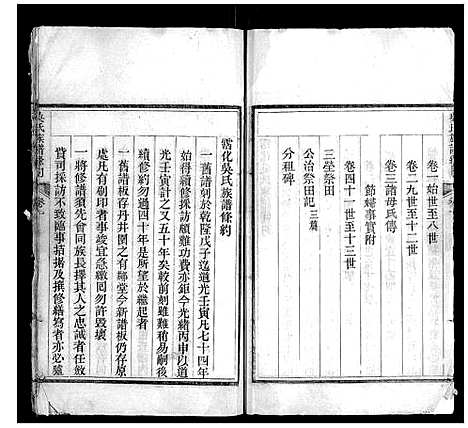 卷一始世至八世
卷二九世至十二世
卷三諸母氏傳
節婦事實附
卷四十一世至十三世
三塋祭田
公冶祭田記三篇
分租碑
霑化吳氏族譜條約
一舊譜刻於乾隆戊子迄道光壬寅凡七十四年
始得續修採訪頗難功費亦鉅今光緒丙申以道
光壬寅計之又五十年矣較前刻雖難稍易嗣後
續修約勿過四十年是所望於繼起者
一舊譜板存丹井園之有鄰堂今新譜板仍存原
處凡有刷印者事竣宜急繳回勿許毀壞
一將修譜須先會同族長擇其人之忠誠者任儆
費司採訪不致臨事掊据及撰修繕寫者亦必遴
吳氏族譜條約
卷九